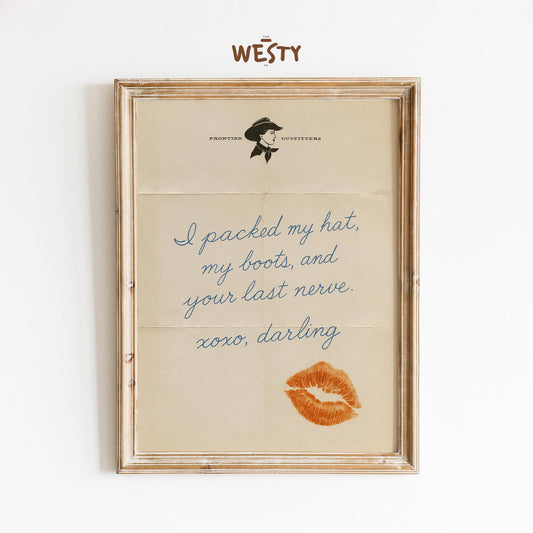 THE
WESTY
CO.
FRONTIER OUTFITTERS
I packed my hat,
my boots, and
your last nerve.
xoxo, darling